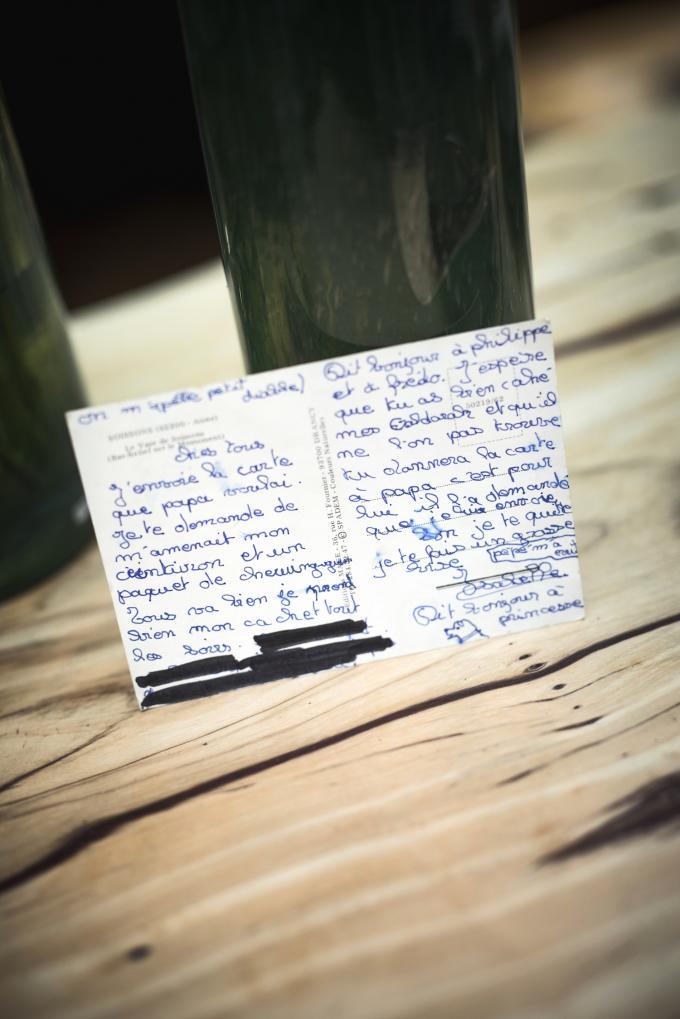 on m'appelle petit
diable)
SOISSONS (02200 - Aisne)
Le Vase de Soissons
(Bas-Relief sur le Monument)
Chers tous
j'envoie la carte
que papa voulai.
je te demande de
m'amenait mon
ceintiron et un
paquet de chewing-gum
Tous va bien je
bien mon cachet tout
les soirs.
36, rue H. Fournier - 93700 DRANCY
SPADEM - Couleurs Naturelles
Dit bonjour à philippe
et à fredo. J'espère
que tu as bien caché
mes et qu'il
ne l'on pas trouvé
50219/62
tu donnera la carte
à papa c'est pour
lui il l'a demandé
que
Bon je te quitte
je te fais une grosse
bise
Isabelle
Dit bonjour à
princesse